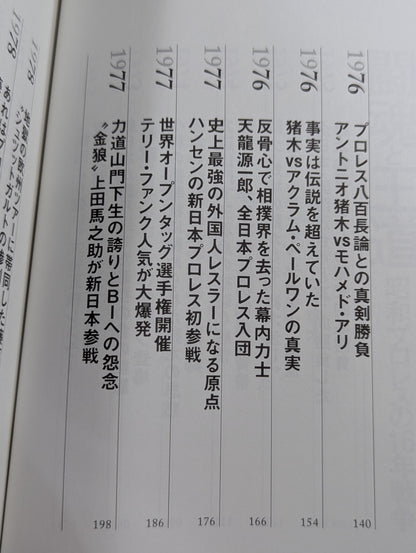 1976
プロレス八百長論との真剣勝負
アントニオ猪木vsモハメド・アリ
140
1976
事実は伝説を超えていた
猪木vsアクラム・ペールワンの真実
154
1976
反骨心で相撲界を去った幕内力士
天龍源一郎、全日本プロレス入団
166
1977
史上最強の外国人レスラーになる原点
ハンセンの新日本プロレス初参戦
176
1977
世界オープンタッグ選手権開催
テリー・ファンク人気が大爆発
186
1977
力道山門下生の誇りとBIへの怨念
“金狼”上田馬之助が新日本参戦
198
1978
地獄の欧州ツアーに帯同した
“シュツットガルトの惨
1978
あれはプロ